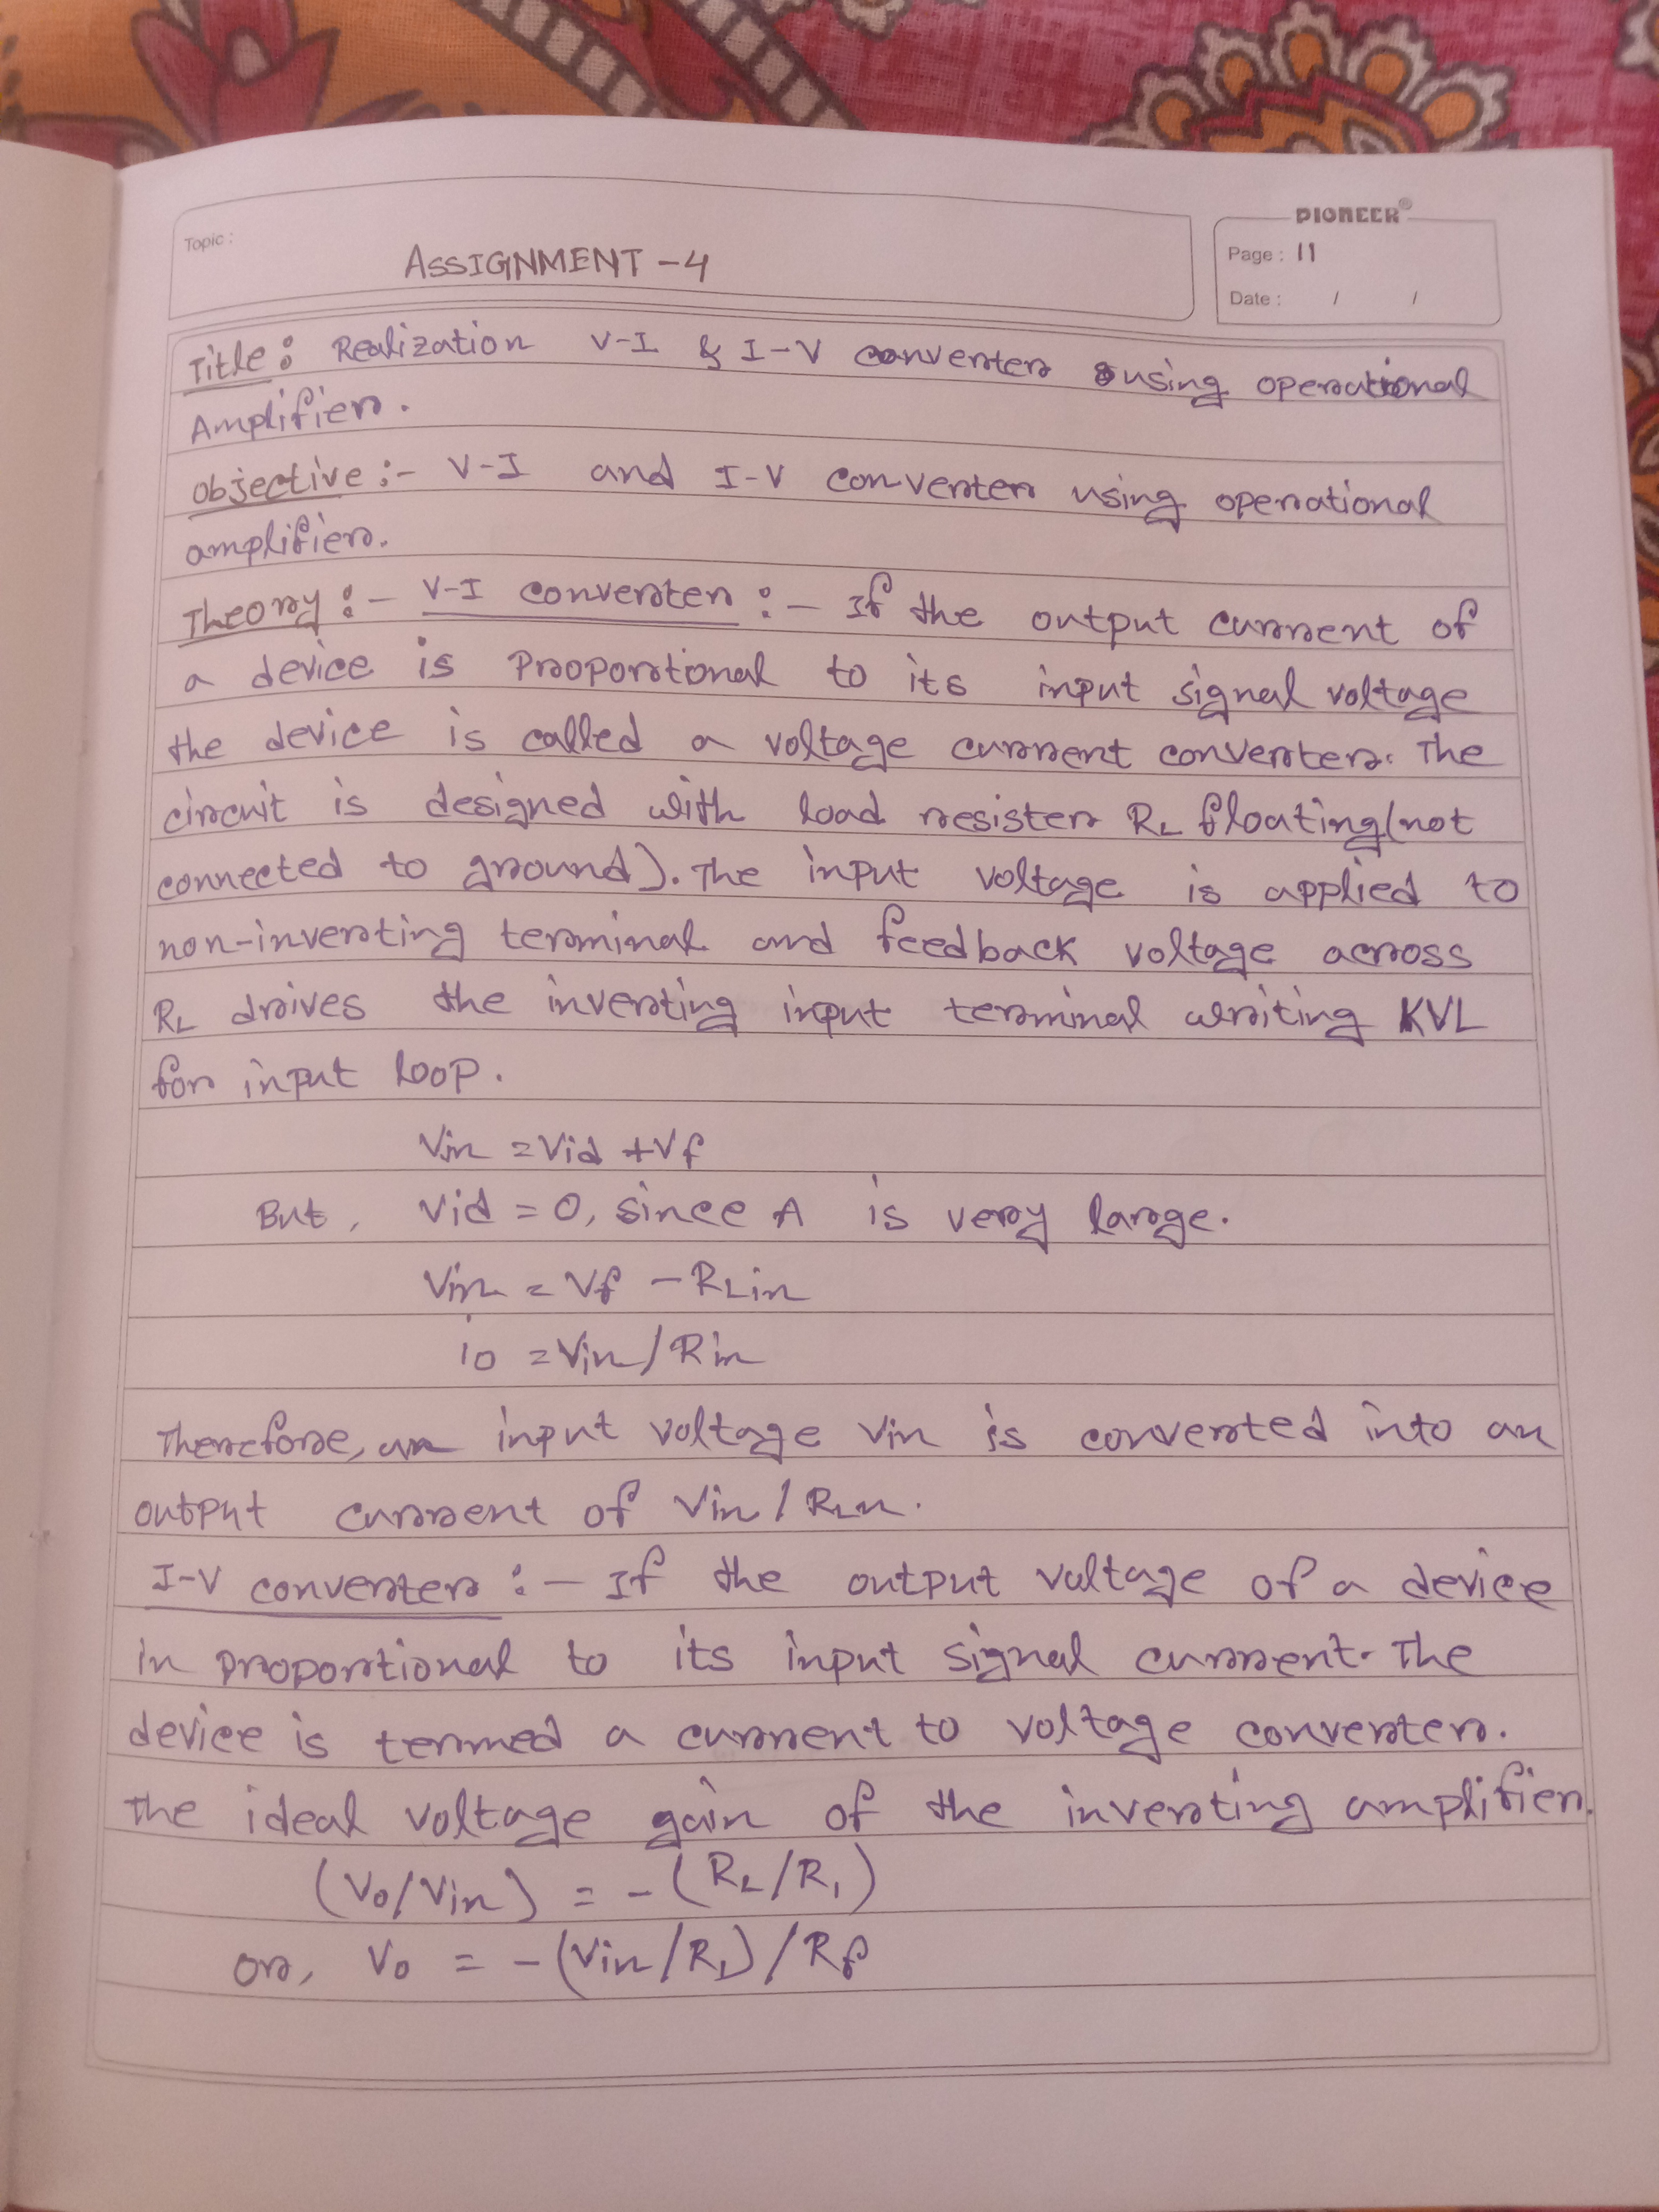 PIONEER®
Topic :
ASSIGNMENT - 4
Page : 11
Date : / /
Title : Realization V-I & I-V converter using operational
Amplifier.
Objective :- V-I and I-V converter using operational
amplifier.
Theory :- V-I converter :- If the output current of
a device is proportional to its input signal voltage
the device is called a voltage current converter. The
circuit is designed with load resister RL floating (not
connected to ground). The input voltage is applied to
non-inverting terminal and feedback voltage across
RL drives the inverting input terminal writing KVL
for input loop.
Vin = Vid + Vf
But, Vid = 0, since A is very large.
Vin = Vf - RLin
io = Vin / Rin
Therefore, an input voltage Vin is converted into an
output current of Vin / RLn.
I-V converter :- If the output voltage of a device
in proportional to its input signal current. The
device is termed a current to voltage converter.
The ideal voltage gain of the inverting amplifier.
(Vo/Vin) = - (RL/R1)
or, Vo = - (Vin/R1) / Rf